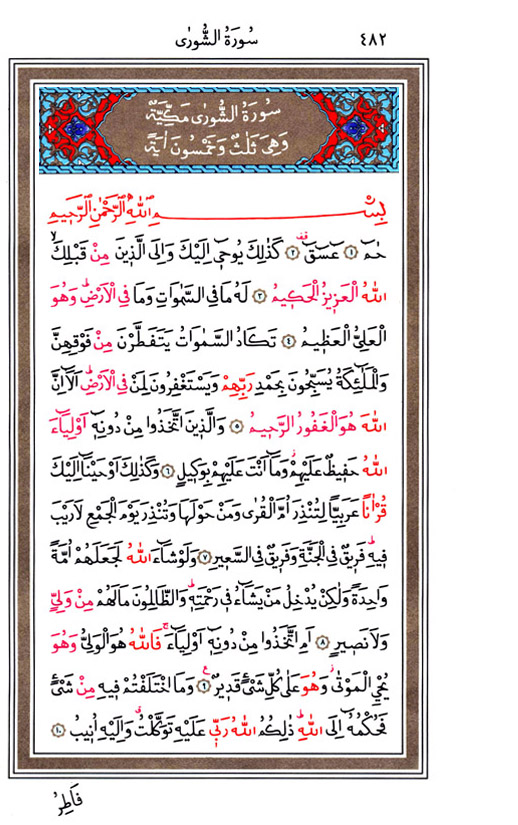 سُورَةُ الشُّورٰى
٤٨٢
سُورَةُ الشُّورٰى مَكِّيَّةٌ
وَهِيَ ثَلٰثٌ وَخَمْسُونَ اٰيَةً
بِسْمِ اللّٰهِ الرَّحْمٰنِ الرَّحِيمِ
حٰمٓ ۝١ عٓسٓقٓ ۝٢ كَذٰلِكَ يُوحٖٓي اِلَيْكَ وَاِلَى الَّذٖينَ مِنْ قَبْلِكَۙ
اللّٰهُ الْعَزٖيزُ الْحَكٖيمُ ۝٣ لَهُ مَا فِي السَّمٰوَاتِ وَمَا فِي الْاَرْضِۜ وَهُوَ
الْعَلِيُّ الْعَظٖيمُ ۝٤ تَكَادُ السَّمٰوَاتُ يَتَفَطَّرْنَ مِنْ فَوْقِهِنَّ
وَالْمَلٰٓئِكَةُ يُسَبِّحُونَ بِحَمْدِ رَبِّهِمْ وَيَسْتَغْفِرُونَ لِمَنْ فِي الْاَرْضِۜ اَلَٓا اِنَّ
اللّٰهَ هُوَ الْغَفُورُ الرَّحٖيمُ ۝٥ وَالَّذٖينَ اتَّخَذُوا مِنْ دُونِهٖٓ اَوْلِيَٓاءَ
اللّٰهُ حَفٖيظٌ عَلَيْهِمْۘ وَمَٓا اَنْتَ عَلَيْهِمْ بِوَكٖيلٍ ۝٦ وَكَذٰلِكَ اَوْحَيْنَٓا اِلَيْكَ
قُرْاٰنًا عَرَبِيًّا لِتُنْذِرَ اُمَّ الْقُرٰى وَمَنْ حَوْلَهَا وَتُنْذِرَ يَوْمَ الْجَمْعِ لَا رَيْبَ
فٖيهِۜ فَرٖيقٌ فِي الْجَنَّةِ وَفَرٖيقٌ فِي السَّعٖيرِ ۝٧ وَلَوْ شَٓاءَ اللّٰهُ لَجَعَلَهُمْ اُمَّةً
وَاحِدَةً وَلٰكِنْ يُدْخِلُ مَنْ يَشَٓاءُ فٖي رَحْمَتِهٖۜ وَالظَّالِمُونَ مَا لَهُمْ مِنْ وَلِيٍّ
وَلَا نَصٖيرٍ ۝٨ اَمِ اتَّخَذُوا مِنْ دُونِهٖٓ اَوْلِيَٓاءَۚ فَاللّٰهُ هُوَ الْوَلِيُّ وَهُوَ
يُحْيِ الْمَوْتٰىۘ وَهُوَ عَلٰى كُلِّ شَيْءٍ قَدٖيرٌ ۝٩ وَمَا اخْتَلَفْتُمْ فٖيهِ مِنْ شَيْءٍ
فَحُكْمُهُٓ اِلَى اللّٰهِۜ ذٰلِكُمُ اللّٰهُ رَبّٖي عَلَيْهِ تَوَكَّلْتُۗ وَاِلَيْهِ اُنٖيبُ ۝١٠
فَاطِرُ